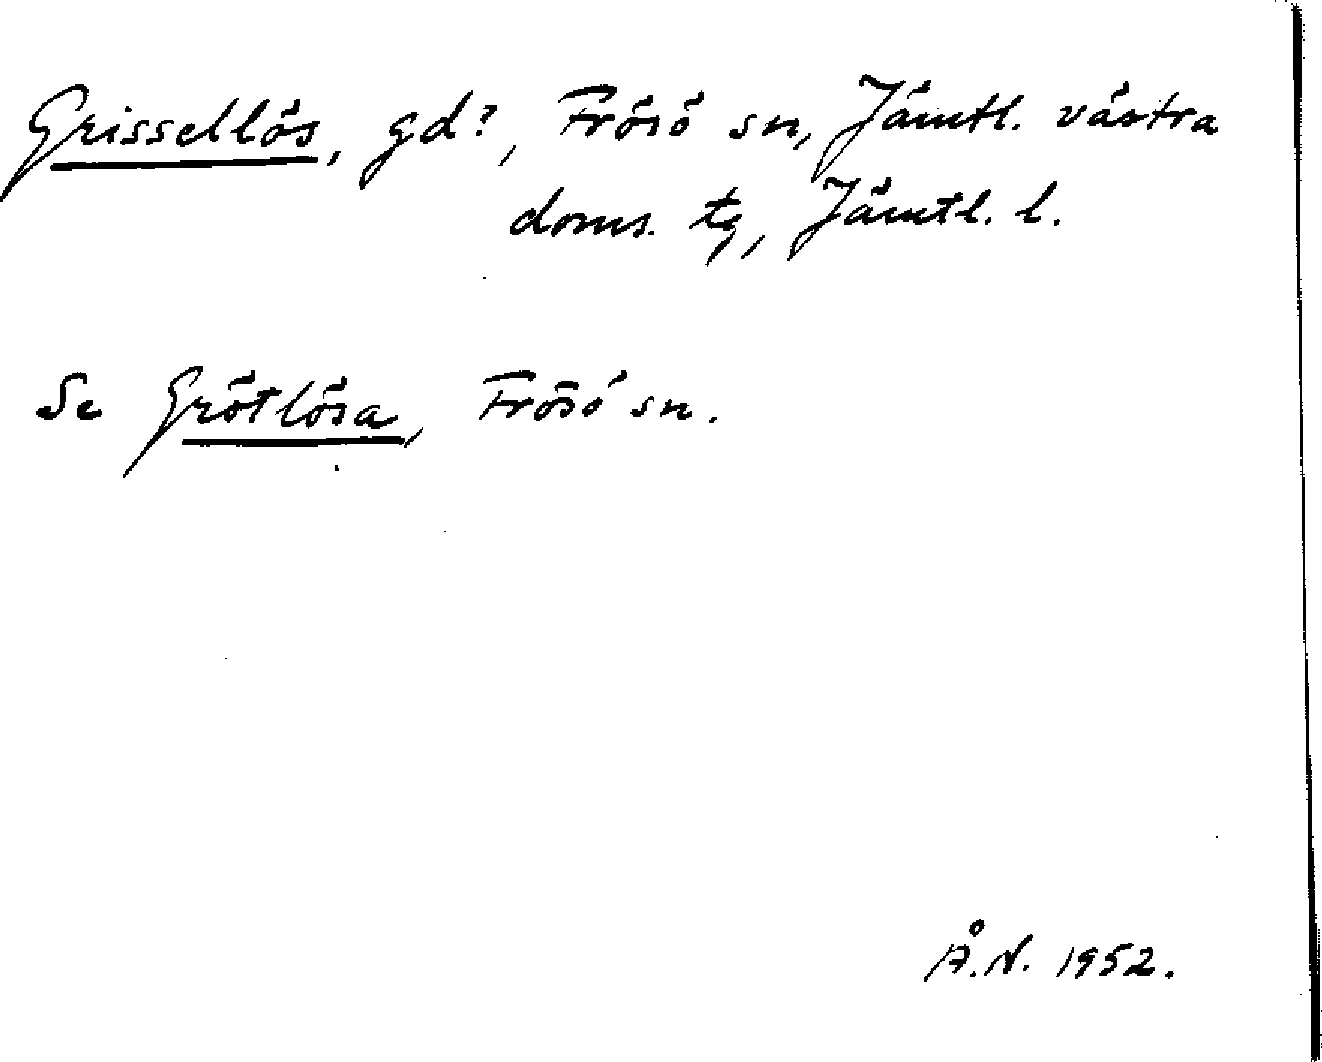 Grissellös, gd?, Frösö sn, Jämtl. västra
doms. tg, Jämtl. l.
Se Grötlösa, Frösö sn.
Å.N. 1952.